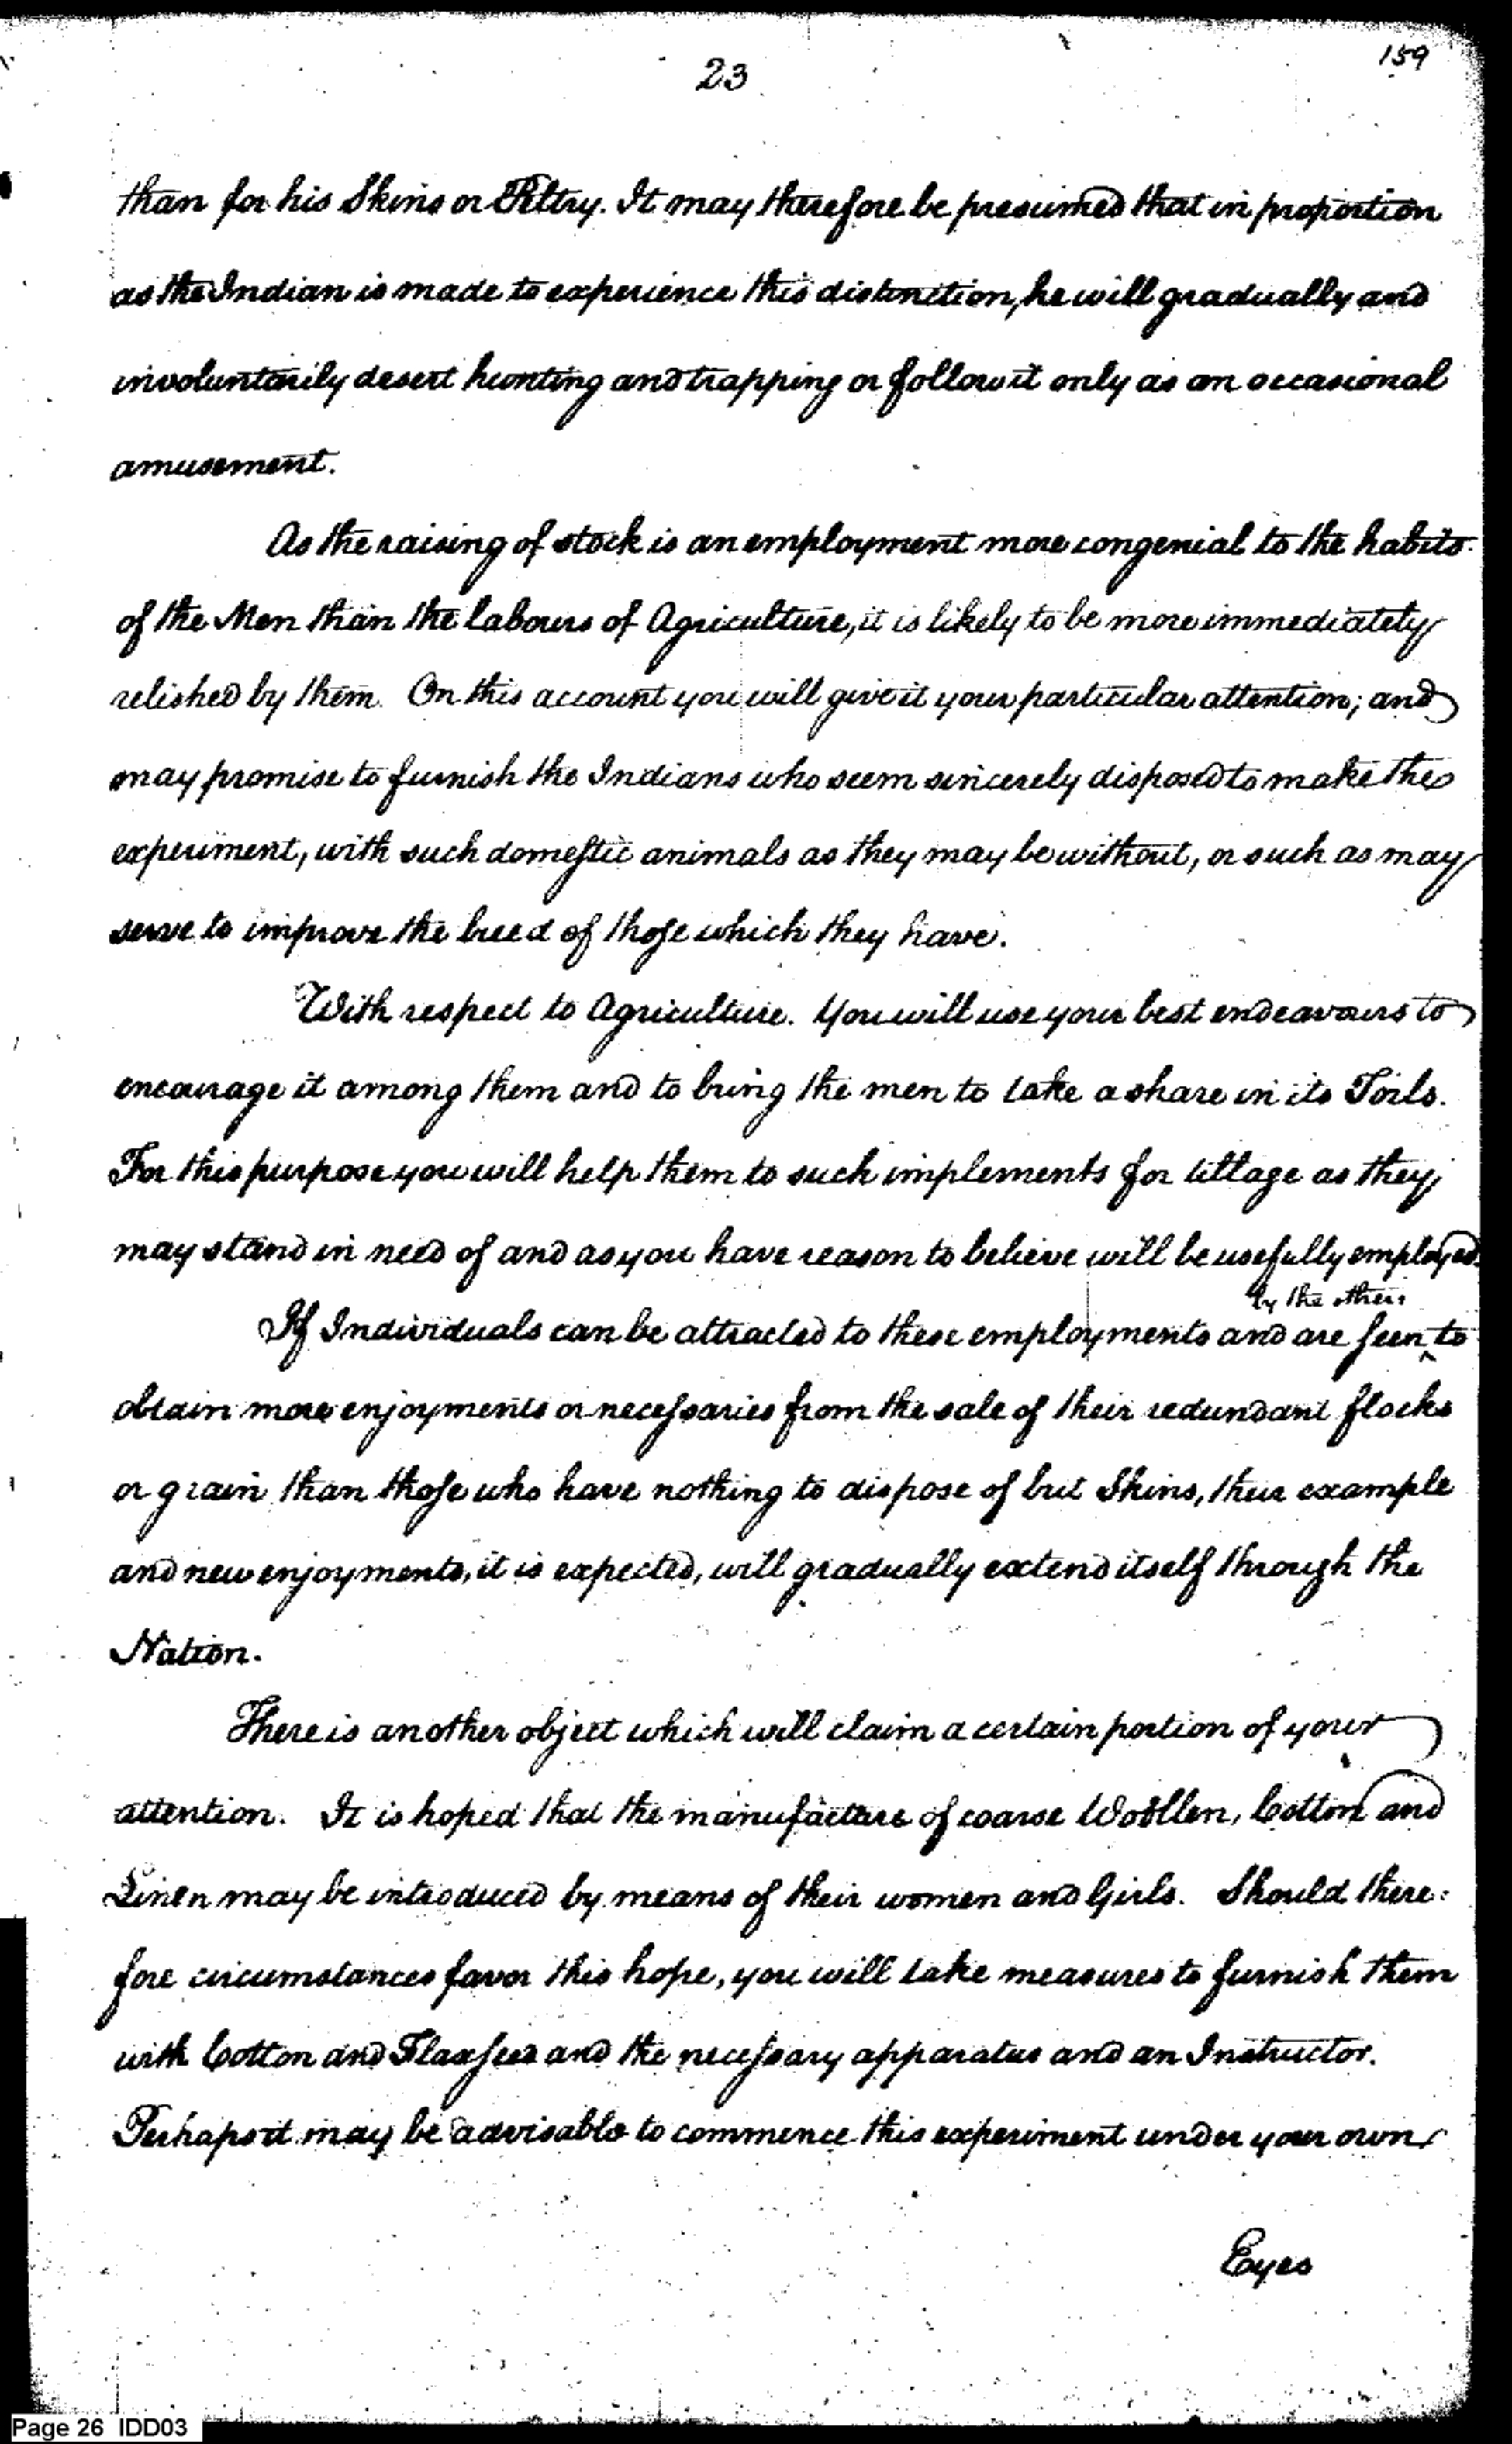 159
23
than for his Skins or Peltry. It may therefore be presumed that in proportion
as the Indian is made to experience this distinction, he will gradually and
involuntarily desert hunting and trapping or follow it only as an occasional
amusement.
As the raising of stock is an employment more congenial to the habits
of the Men than the labours of Agriculture, it is likely to be more immediately
relished by them. On this account you will give it your particular attention; and
may promise to furnish the Indians who seem sincerely disposed to make the
experiment, with such domestic animals as they may be without, or such as may
serve to improve the breed of those which they have.
With respect to Agriculture. You will use your best endeavours to
encourage it among them and to bring the men to take a share in its Toils.
For this purpose you will help them to such implements for tillage as they
may stand in need of and as you have reason to believe will be usefully employed.
by the others
If Individuals can be attracted to these employments and are seen ‸ to
obtain more enjoyments or necessaries from the sale of their redundant flocks
or grain than those who have nothing to dispose of but Skins, their example
and new enjoyments, it is expected, will gradually extend itself through the
Nation.
There is another object which will claim a certain portion of your
attention. It is hoped that the manufacture of coarse Woollen, Cotton and
Linen may be introduced by means of their women and Girls. Should there:
fore circumstances favor this hope, you will take measures to furnish them
with Cotton and Flaxseed and the necessary apparatus and an Instructor.
Perhaps it may be advisable to commence this experiment under your own
Eyes
Page 26 IDD03